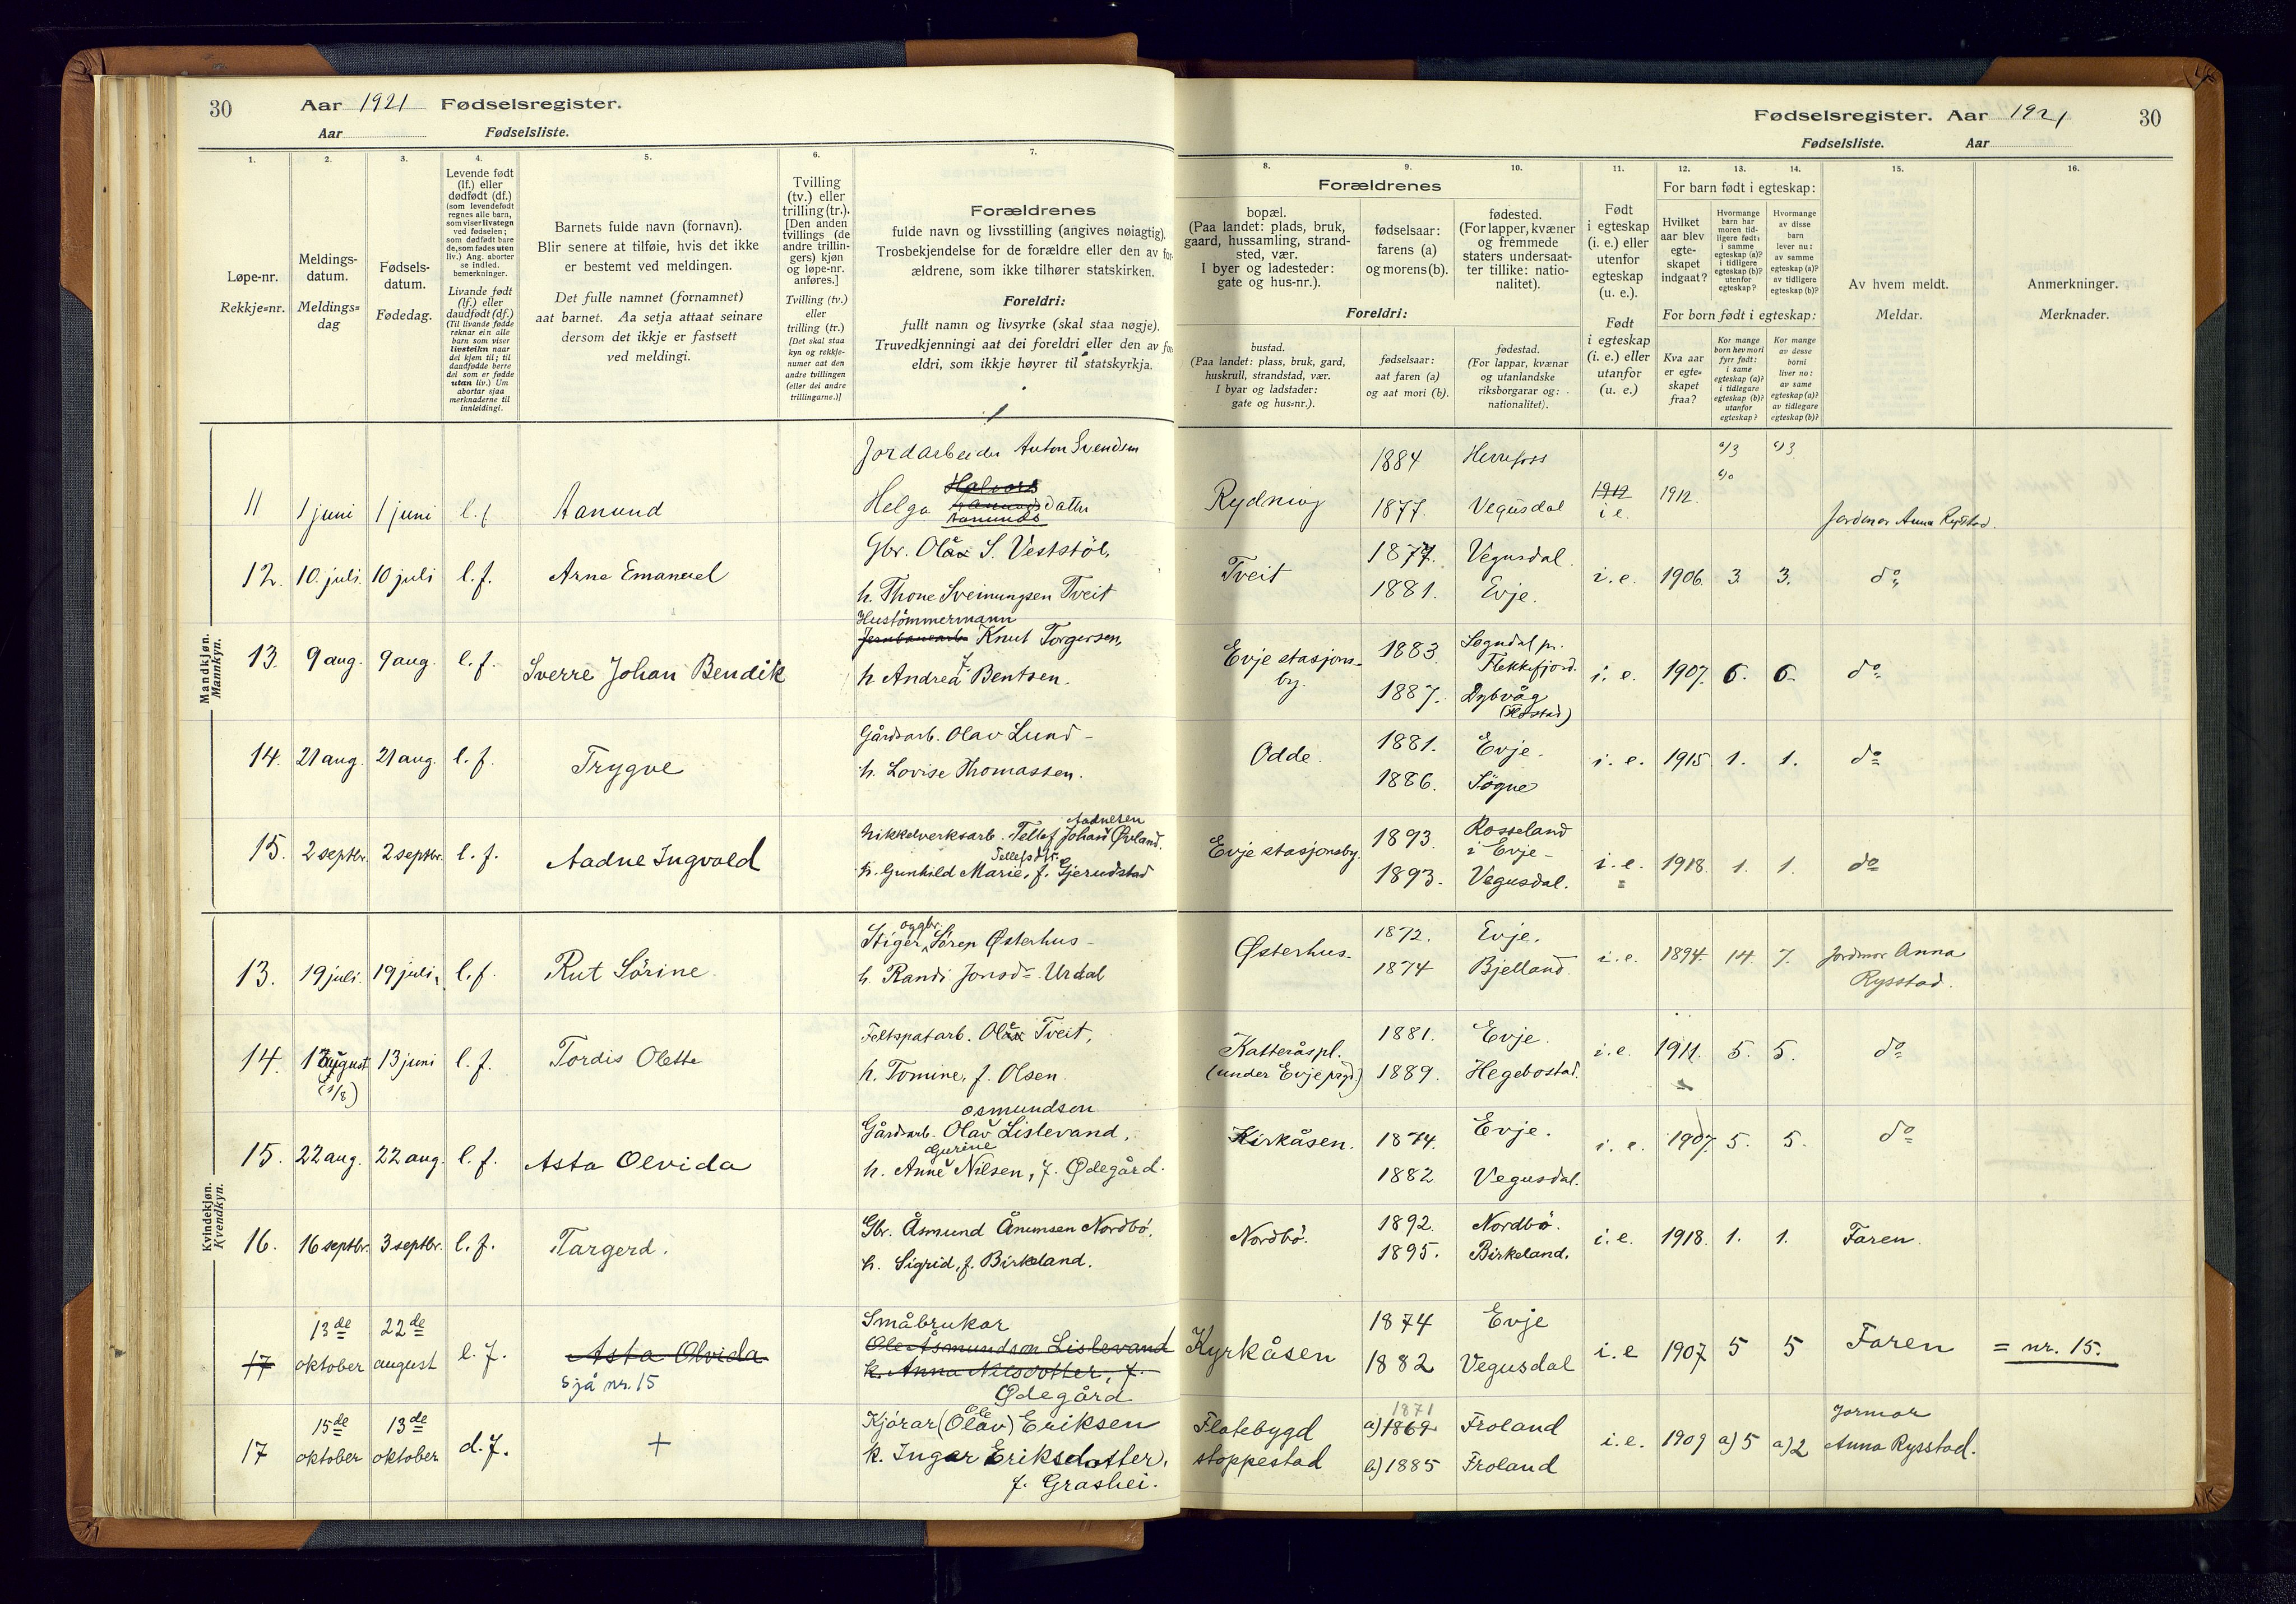 30 Aar 1921 Fødselsregister.
Aar Fødselsliste.
1. 2. 3. 4. 5. 6. 7.
Løpe-nr.
Rekkje=nr.
Meldings-
datum.
Meldings=
dag
Fødsels-
datum.
Fødedag.
Levende født
(lf.) eller
dødfødt (df.)
(som levendefødt
regnes alle barn,
som viser livstegn
ved fødselen;
som dødfødt bare
de, som fødes uten
liv.) Ang. aborter
se indled.
bemerkninger.
Livande født
(lf.) eller
daudfødt (df.)
(Til livande fødde
reknar ein alle
barn som viser
livsteikn naar
dei kjem til; til
daudfødde berre
dei som er fødde
utan liv.) Um
abortar sjaa
merknaderne til
innleidingi.
Barnets fulde navn (fornavn).
Blir senere at tilføie, hvis det ikke
er bestemt ved meldingen.
Det fulle namnet (fornamnet)
aat barnet. Aa setja attaat seinare
dersom det ikkje er fastsett
ved meldingi.
Tvilling
(tv.) eller
trilling (tr.).
[Den anden
tvillings (de
andre trillin-
gers) kjøn
og løpe-nr.
anføres.]
Tvilling (tv.)
eller
trilling (tr.)
[Det skal staa
kyn og rekkje-
numer aat den
andre tvillingen
(eller dei andre
trillingarne.)]
Forældrenes
fulde navn og livsstilling (angives nøiagtig).
Trosbekjendelse for de forældre eller den av for-
ældrene, som ikke tilhører statskirken.
Foreldri:
fullt namn og livsyrke (skal staa nøgje).
Truvedkjenningi aat dei foreldri eller den av for
eldri, som ikkje høyrer til statskyrkja.
Mandkjøn.
Mannkyn.
Jordarbeider Anton Svendsen
Halvors
11 1 juni 1 juni l.f. Aanund Helga datter
Aanunds
Gbr. Olav S. Veststöl,
12. 10. juli. 10 juli l.f. Arne Emanuel
h. Thone Sveinungsen Tveit
Hustömmermann
Jernbanearb. Knut Torgersen,
13. 9 aug. 9 aug. l.f. Sverre Johan Bendik
h. Andrea F. Bentsen.
Gårdsarb. Olav Lund -
14. 21 aug. 21 aug. l.f. Trygve
h. Lovise Thomassen.
Aadnesen
Nikkelverksarb. Tellef Johan Øvland.
15. 2 septbr. 2 septbr. l.f. Aadne Ingvald
Tellefsdtr.
h. Gunhild Marie, f. Gjerudstad
Kvindekjøn.
Kvendkyn.
og gbr.
Stiger Sören Østerhus -
13. 19 juli. 19 juli. l.f. Rut Sörine
h. Randi Jonsd. Urdal
Feltspatarb. Olav Tveit,
14. 13 august 13 juni l.f. Tordis Olette
(1/8)
h. Tomine, f. Olsen.
Osmundsen
Gårdsarb. Olav Lislevand,
15. 22 aug. 22 aug. l.f. Asta Olvida
Gurine
h. Anne Nilsen, f. Ødegård.
Gbr. Åsmund Ånumsen Nordbö.
16. 16 septbr. 3 septbr. l.f. Targerd.
h. Sigrid, f. Birkeland.
Småbrukar
13de 22de
17 oktober august l.f. Asta Olvida Ole Åsmundson Lislevand
sjå nr. 15
k. Anna Nilsdotter, f.
Ødegård
15de 13de Kjørar (Olav) Eriksen
Ole
17 oktober oktober d.f. +
k. Inger Eriksdotter.
f. Grashei.
Fødselsregister. Aar 1921 30
Fødselsliste. Aar
8. 9. 10. 11. 12. 13. 14. 15. 16.
Forældrenes
bopæl.
(Paa landet: plads, bruk,
gaard, hussamling, strand-
sted, vær.
I byer og ladesteder:
gate og hus-nr.).
fødselsaar:
farens (a)
og morens (b).
fødested.
(For lapper, kvæner
og fremmede
staters undersaat-
ter tillike: natio-
nalitet).
Foreldri:
bustad.
(Paa landet: plass, bruk, gard,
huskrull, strandstad, vær.
I byar og ladstader:
gate og hus-nr.).
fødselsaar:
aat faren (a)
og aat mori (b).
fødestad.
(For lappar, kvænar
og utanlandske
riksborgarar og:
nationalitet).
Født
i egteskap
(i. e.) eller
utenfor
egteskap
(u. e.).
Født
i egteskap
(i. e.) eller
utanfor
(u. e.)
For barn født i egteskap:
Hvilket
aar blev
egte-
skapet
indgaat?
Hvormange
barn har
moren tid-
ligere født:
i samme
egteskap (a)?
i tidligere
egteskap (b)?
utenfor
egteskap?
Hvormange
av disse
barn
lever nu:
av samme
egteskap (a)?
av tidligere
egteskap (b)?
For born født i egteskap:
Kva aar
er egte-
skapet
fraa?
Kor mange
born hev mori
fyrr født:
i same
egteskap (a)?
i tidlegare
egteskap (b)?
utanfor
egteskap?
Kor mange
av desse
borni
liver no:
av same
egteskap (a)?
av tidlegare
egteskap (b)?
Av hvem meldt.
Meldar.
Anmerkninger.
Merknader.
1884 Herrefoss a/3 a/3
Rydning 1877. Vegusdal 1912 i e. 1912. Jordmor Anna Rysstad.
1877. Vegusdal.
Tveit i. e. 1906. 3. 3. do
1881. Evje.
1883. Sogndal pr.
Flekkefjord.
Evje stasjons-
by. i. e. 1907. 6. 6. do
1887. Dybvåg
1881. Evje.
Odde. i. e. 1915 1. 1. do
1886. Sögne
1893. Rosseland
i Evje -
Evje stasjonsby. i. e. 1918. 1. 1. do
1893. Vegusdal.
1872. Evje.
Østerhus. i. e. 1894. 14. 7. Jordmor Anna
Rysstad.
1874 Bjelland.
1881. Evje.
Katteråspl. i. e. 1911. 5. 5. do
(under Evje prgd.) 1889. Hegebostad.
Kirkåsen. 1874. Evje. i. e. 1907. 5. 5. do
1882 Vegusdal.
1892. Nordbö.
Nordbö. i. e. 1918. 1. 1. Faren.
1895. Birkeland.
1874 Evje
Kyrkåsen i. e 1907 5 5 Faren = nr. 15.
1882 Vegusdal
1871
Flatebygd a) 1869 Froland Jormor
i. e. 1909 a) 5 a) 2 Anna Rysstad.
stoppestad b) 1885 Froland